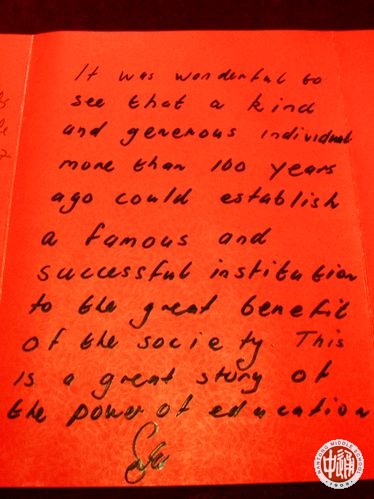 It was wonderful to
see that a kind
and generous individual
more than 100 years
ago could establish
a famous and
successful institution
to the great benefit
of the society. This
is a great story of
the power of education
NANTONG MIDDLE SCHOOL
1909